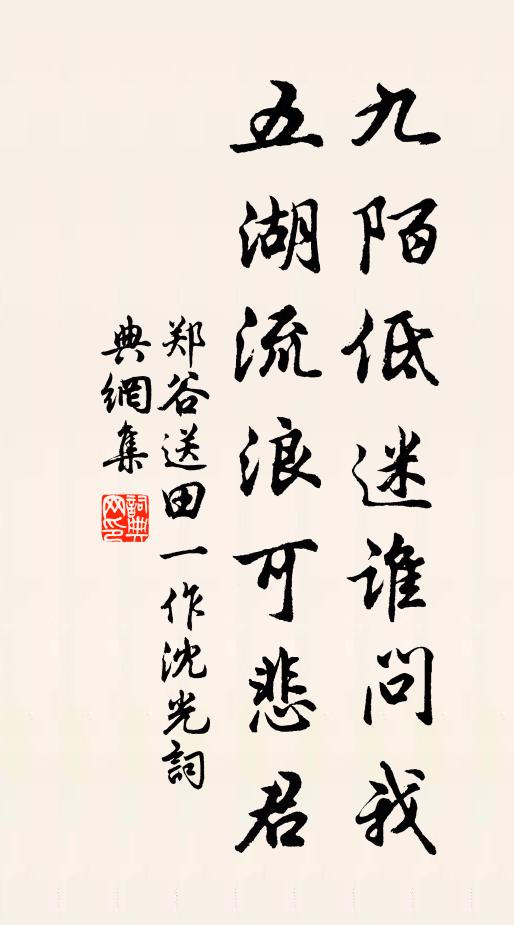 九陌低迷谁问我
五湖流浪可悲君
郑谷送田一作沈光詞
典網集
詞典网印